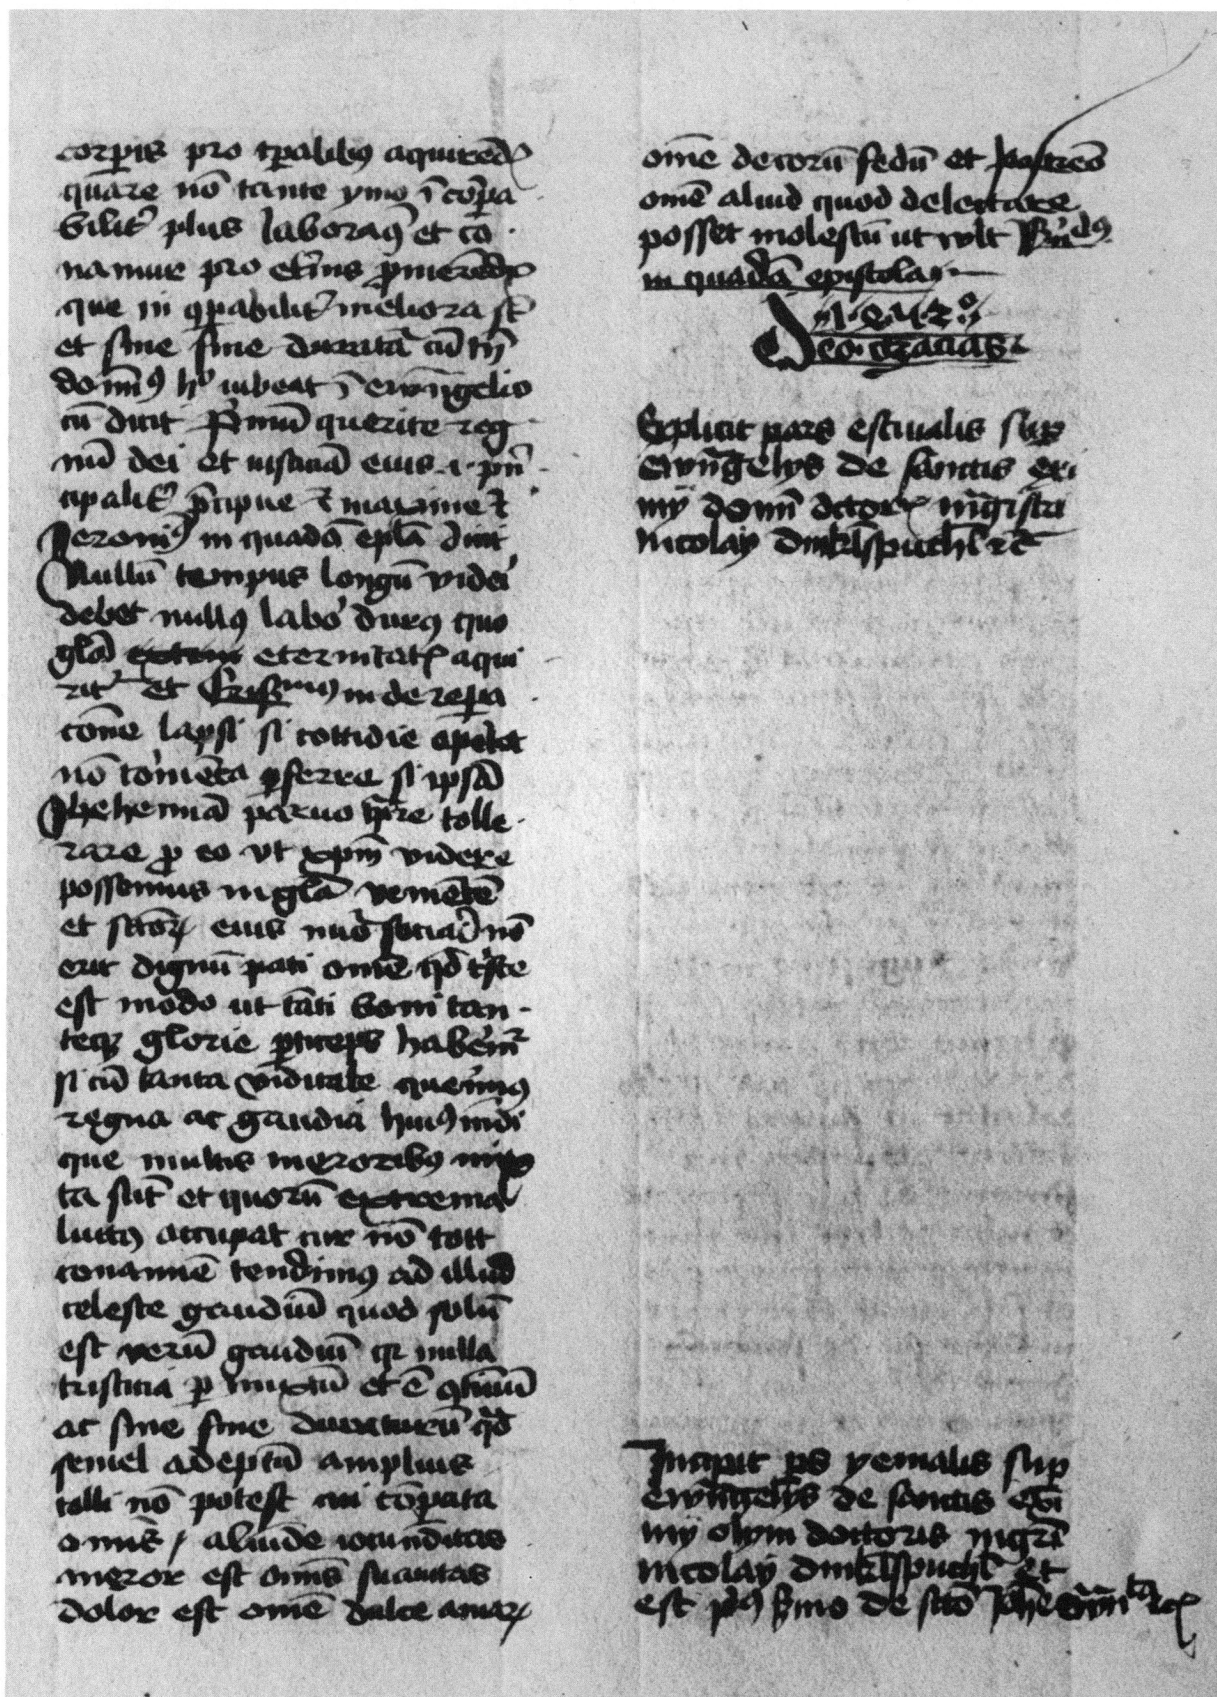 corpis pro tpalibꝰ aquirēdꝭ
quare nō tante ymo ī cōpa
bilitʳ plus laboramꝰ et cō
namur pro etʳnis ꝓmerēdꝭ
que in ꝯpabilitʳ meliora st̄
et sine fine duratā cū tn̄
domīꝰ hᵒ iubeat ī ewāngelio
cū dicit Pʳmū querite reg
nū dei et iusticiā eius .i. pʳn
cipalitʳ p̄cipue ⁊ maxime ⁊c̄
Jeronīꝰ in quadā epl̄a dicit
Nullū tempus longū videri
debet nullꝰ labor durꝰ quo
gl̄a eternitatꝭ aqui
ritʳ et Crisꝰᵐꝰ in de repa
cōne lapsi si cottidie oportet
nō tormēta ꝑferre si ipsā
Jhehennā paruo tꝑre tolle
rare ꝓ eo vt xpm̄ videre
possemus in gl̄ā veniētē
et sctōꝝ eius nūō sociari nō
erit dignū pati omē qd̄ tʳste
est modo ut tāti boni tan
teqꝫ glorie ꝑticeps habeamʳ
si cū tanta viditate querimꝰ
regna ac gaudia huiꝰ mūdi
que multis meroribꝰ mix
ta sūt et quorū extrema
luctꝰ occupat cur nō tott
conanimē tendimꝰ ad illud
celeste gaudiū quod solū
est verū gaudiū qʳ nulla
tristicia ꝑ mixtū et ē ꝯtinuū
ac sine fine duraturū qd̄
semel adeptū amplius
tolli nō potest cui cōpata
omīs aliunde iocunditas
meror est omīs suauitas
dolor est omē dulce amaꝝ
omē decorū fedū et postremo
omē aliud quod delectare
posset molestū ut vult Bʳnᵈꝰ
in quadā epistola
Deo gracias
Explicit pars estiualis sup
ewāngelys de sanctis exi
mÿ domī dctorꝭ māgistri
nicolay dinkl̄spuchl̄ ⁊c̄
Incipit ps yemalis sup
ewāngelys de sanctis exi
mÿ olym doctoris mgr̄i
nicolaÿ dinkl̄spuchl̄ et
est pʳꝰ sʳmo de sctō Johe ewāntā ⁊cꝭ